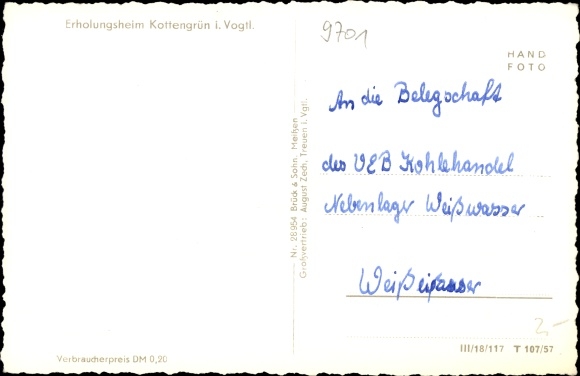 Erholungsheim Kottengrün i. Vogtl.
Verbraucherpreis DM 0,20
Nr. 28954 Brück & Sohn, Meißen
Großvertrieb: August Zech, Treuen i. Vgtl.
9701
HAND
FOTO
An die Belegschaft
des VEB Kohlehandel
Nebenlager Weißwasser
Weißwasser
2,-
III/18/117 T 107/57